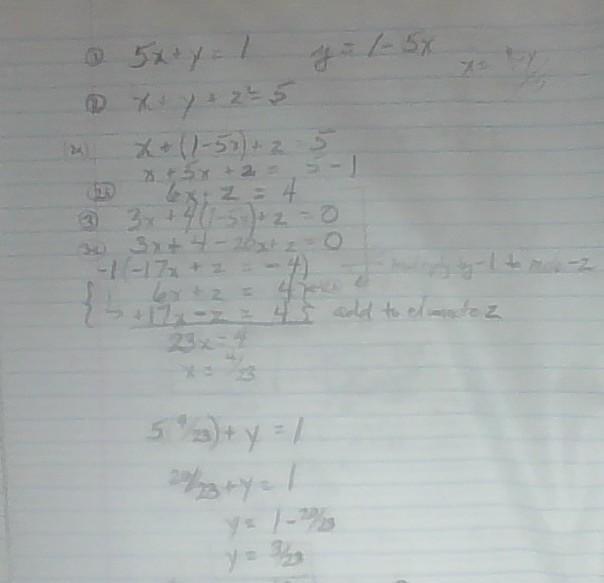 ① 5x + y = 1 y = 1 - 5x
② x + y + z = 5
x + (1-5x) + z = 5
x + 5x + z = 5 - 1
6x + z = 4
③ 3x + 4(1-5x) + z = 0
3x + 4 - 20x + z = 0
-1(-17x + z = -4) multiply by -1 to -z
6x + z = 4
+17x - z = 4 add to eliminate z
23x = 
x = /23
5( /23) + y = 1
20/23 + y = 1
y = 1 - 20/23
y = 3/23